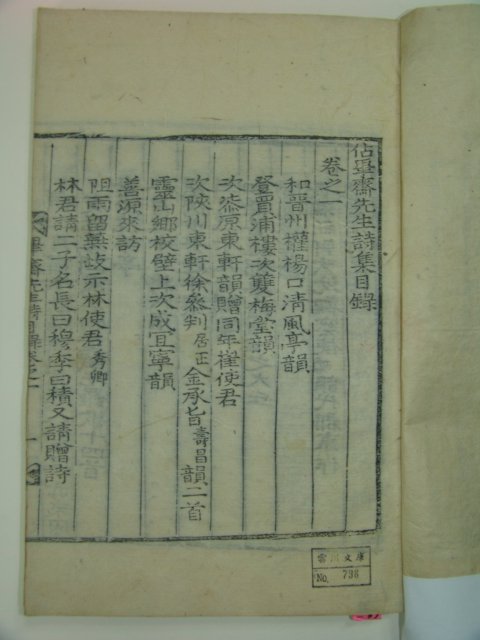 佔畢齋先生詩集目錄
卷之一
和晉州權楊口清風亭韻
登買浦樓次雙梅堂韻
次漆原東軒韻贈同年崔使君
次陜川東軒徐叅判居正金承旨壽昌韻二首
靈山鄉校壁上次成宜寧韻
善源來訪
阻雨留無歧示林使君秀卿
林君請二子名長曰穆季曰積又請贈詩
畢齋先生詩目錄卷之一
文庫
No. 736